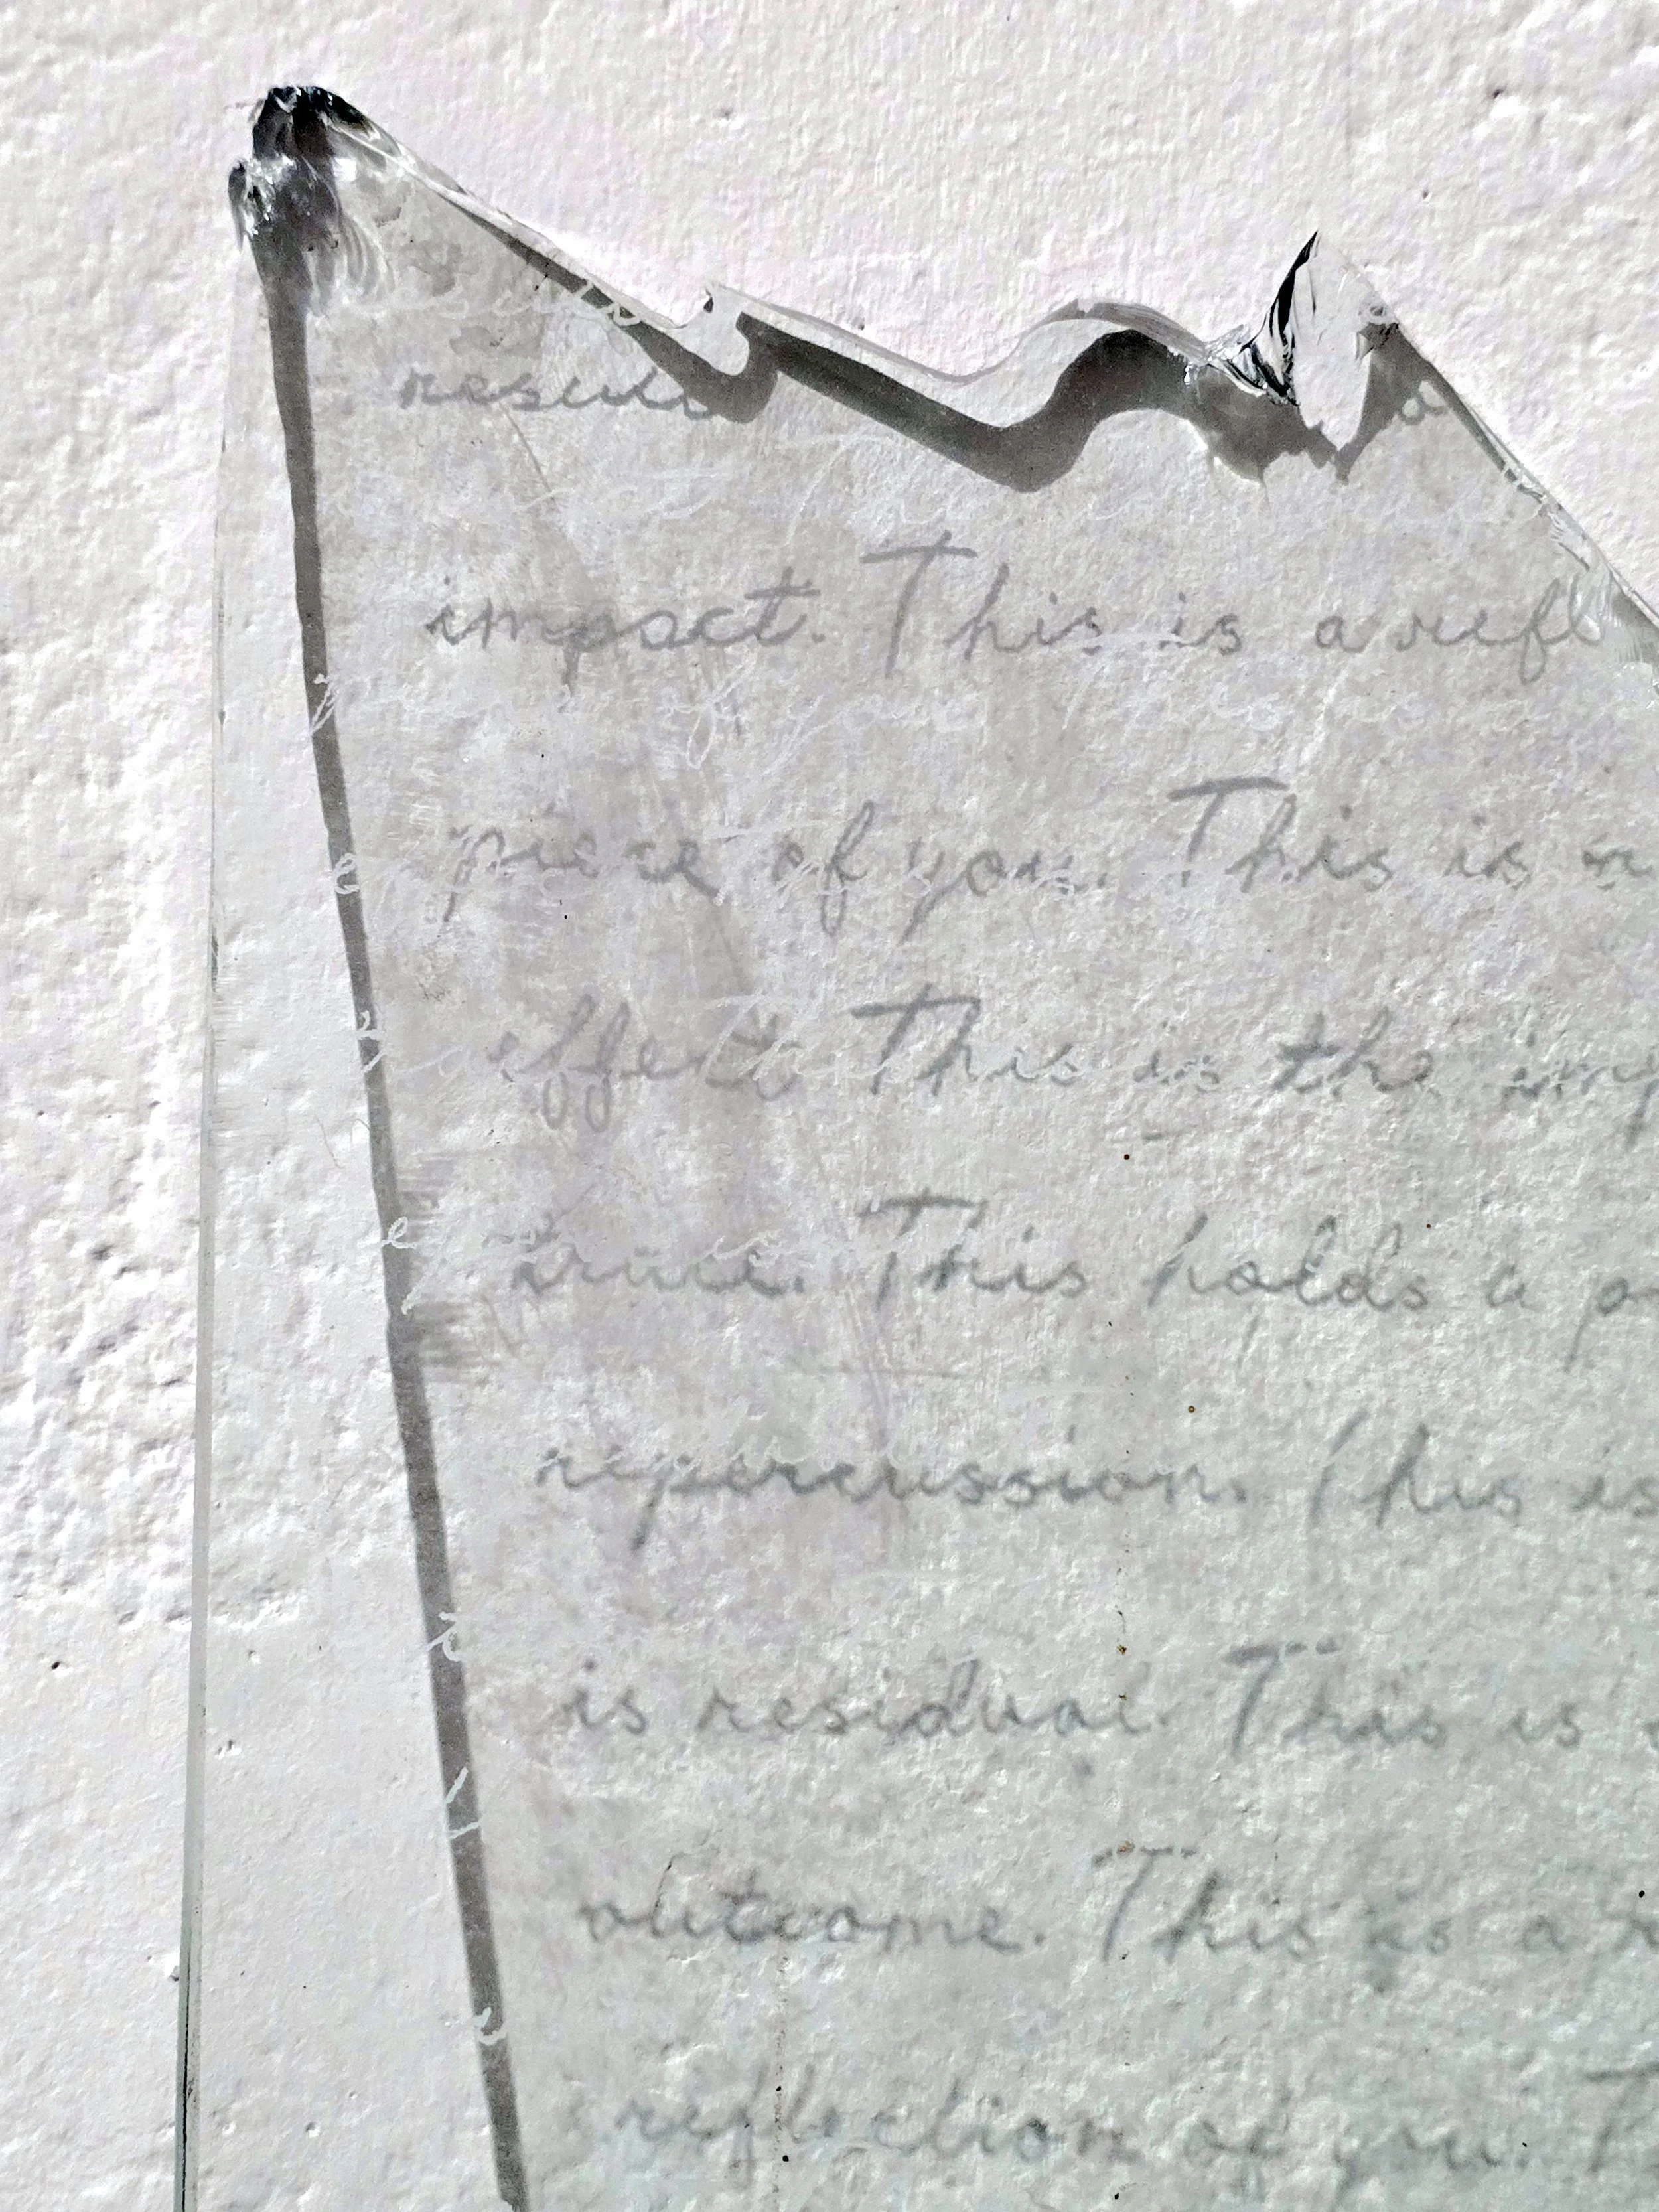 impact. This is a refl
piece of you. This is
effect. This is the imp
trace. This holds a
repercussion. This is
is residual. This is
outcome. This is a
reflection of you.